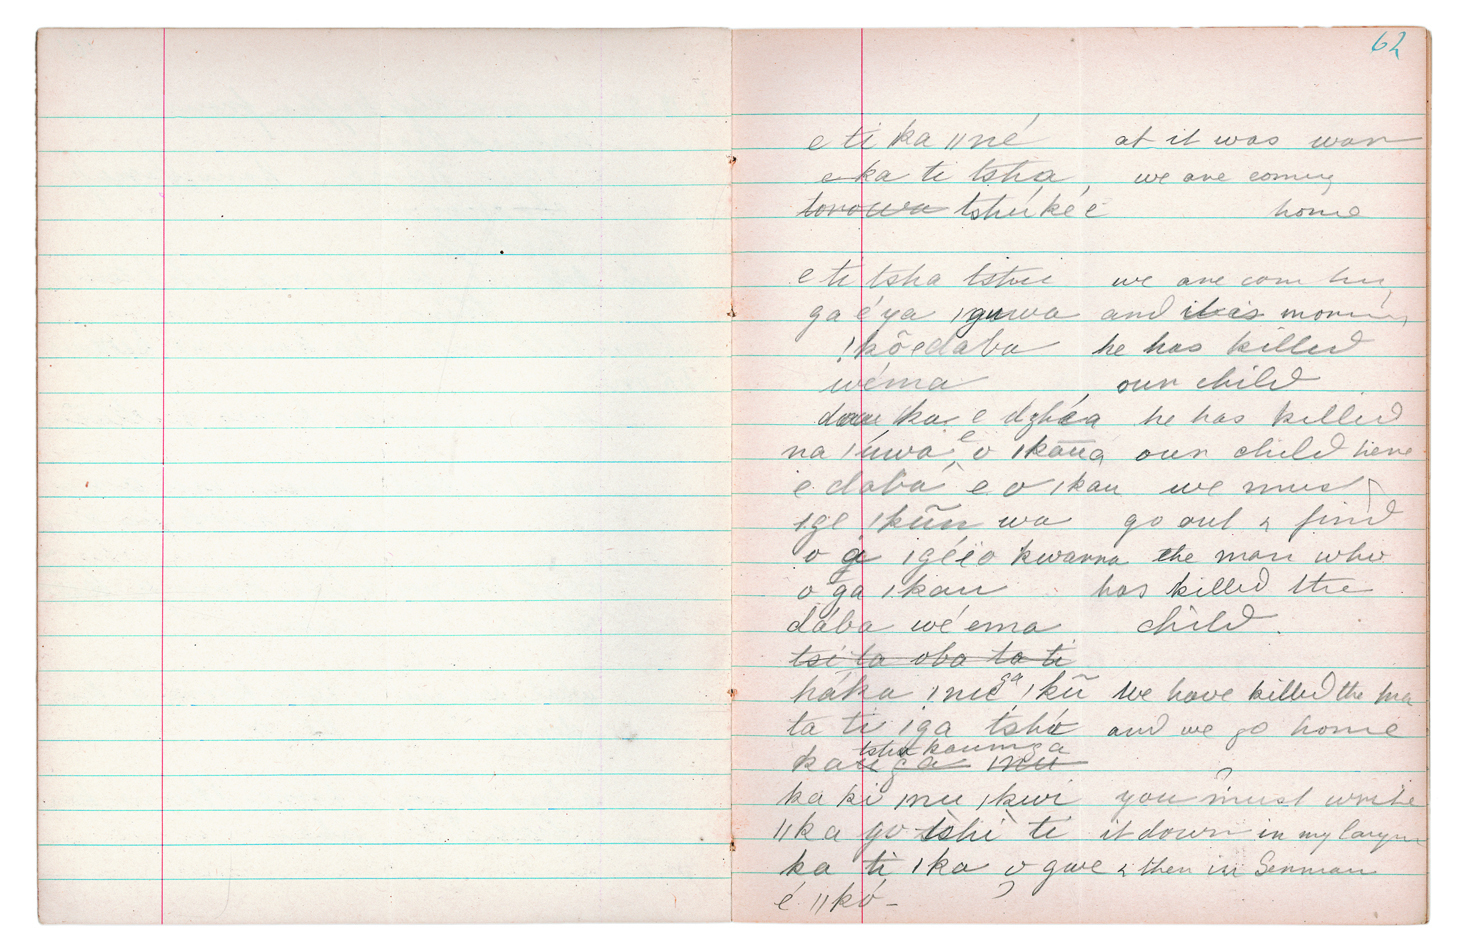 62
e ti ka ||né at it was war
e ka ti tsha, we are coming
torowa tshú ké e home
e ti tsha tshu we are com
ga é ya |guwa and it is morning
!kõedaba he has killed
wéma our child
ka e he has killed
na |úwa e o |kaūa our child here
e daba e o |kau we must
|ge |kũn wa go out & find
o g |géïo kwanna the man who
o ga |kau has killed the
dába wé ema child.
tsi ta oba ta ti
háka |nue ga |kũ we have killed the ma
ta ti |ga tshú and we go home
tshu kaumga
ka ga |nu
ka ki |nu |kwi you must write
||ka go tshi ti it down in my langu
ka ti |ka o gwe & then in German
é ||kó –